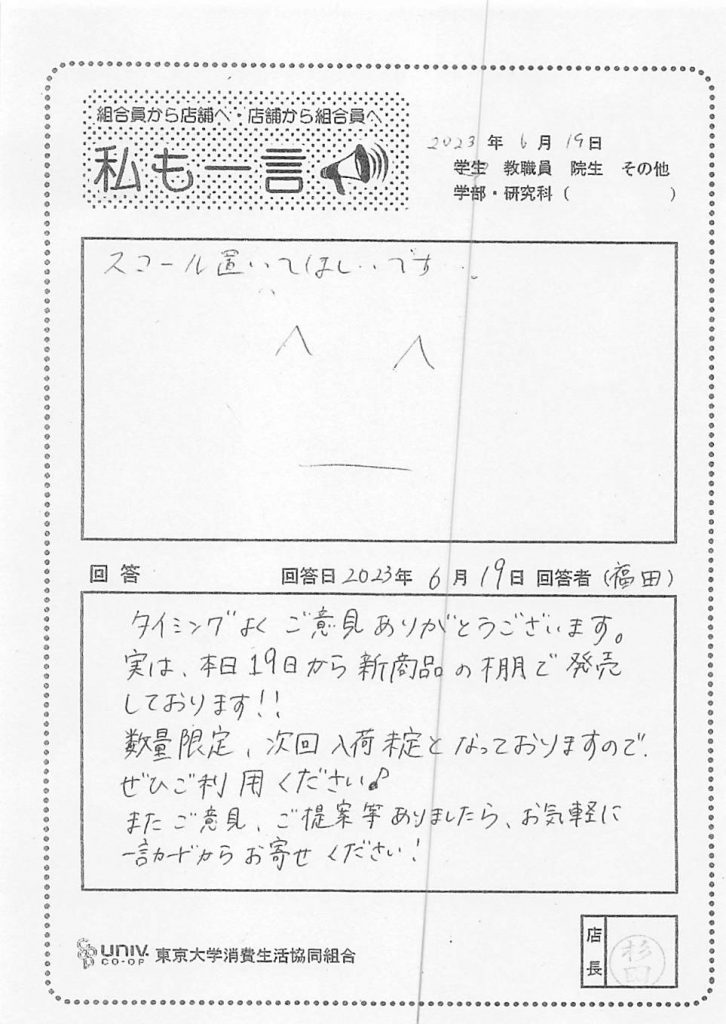 組合員から店舗へ・店舗から組合員へ
私も一言
2023年6月19日
学生 教職員 院生 その他
学部・研究科（　　　）
スコール置いてほしいです…。
回答 回答日2023年6月19日 回答者（福田）
タイミングよくご意見ありがとうございます。
実は、本日19日から新商品の棚で発売
しております!!
数量限定、次回入荷未定となっておりますので、
ぜひご利用ください♪
またご意見、ご提案等ありましたら、お気軽に
一言カードからお寄せください!
UNIV. CO-OP 東京大学消費生活協同組合
店長